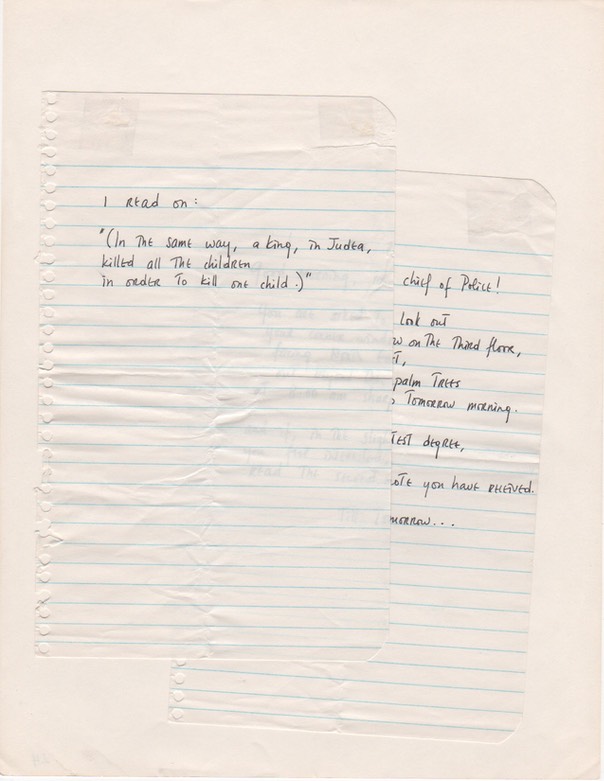 I read on:
"(In the same way, a king, in Judea,
killed all the children
in order to kill one child.)"
chief of Police!
Look out
w on the third floor,
ET,
palm trees
tomorrow morning.
test degree,
ote you have received.
morrow...